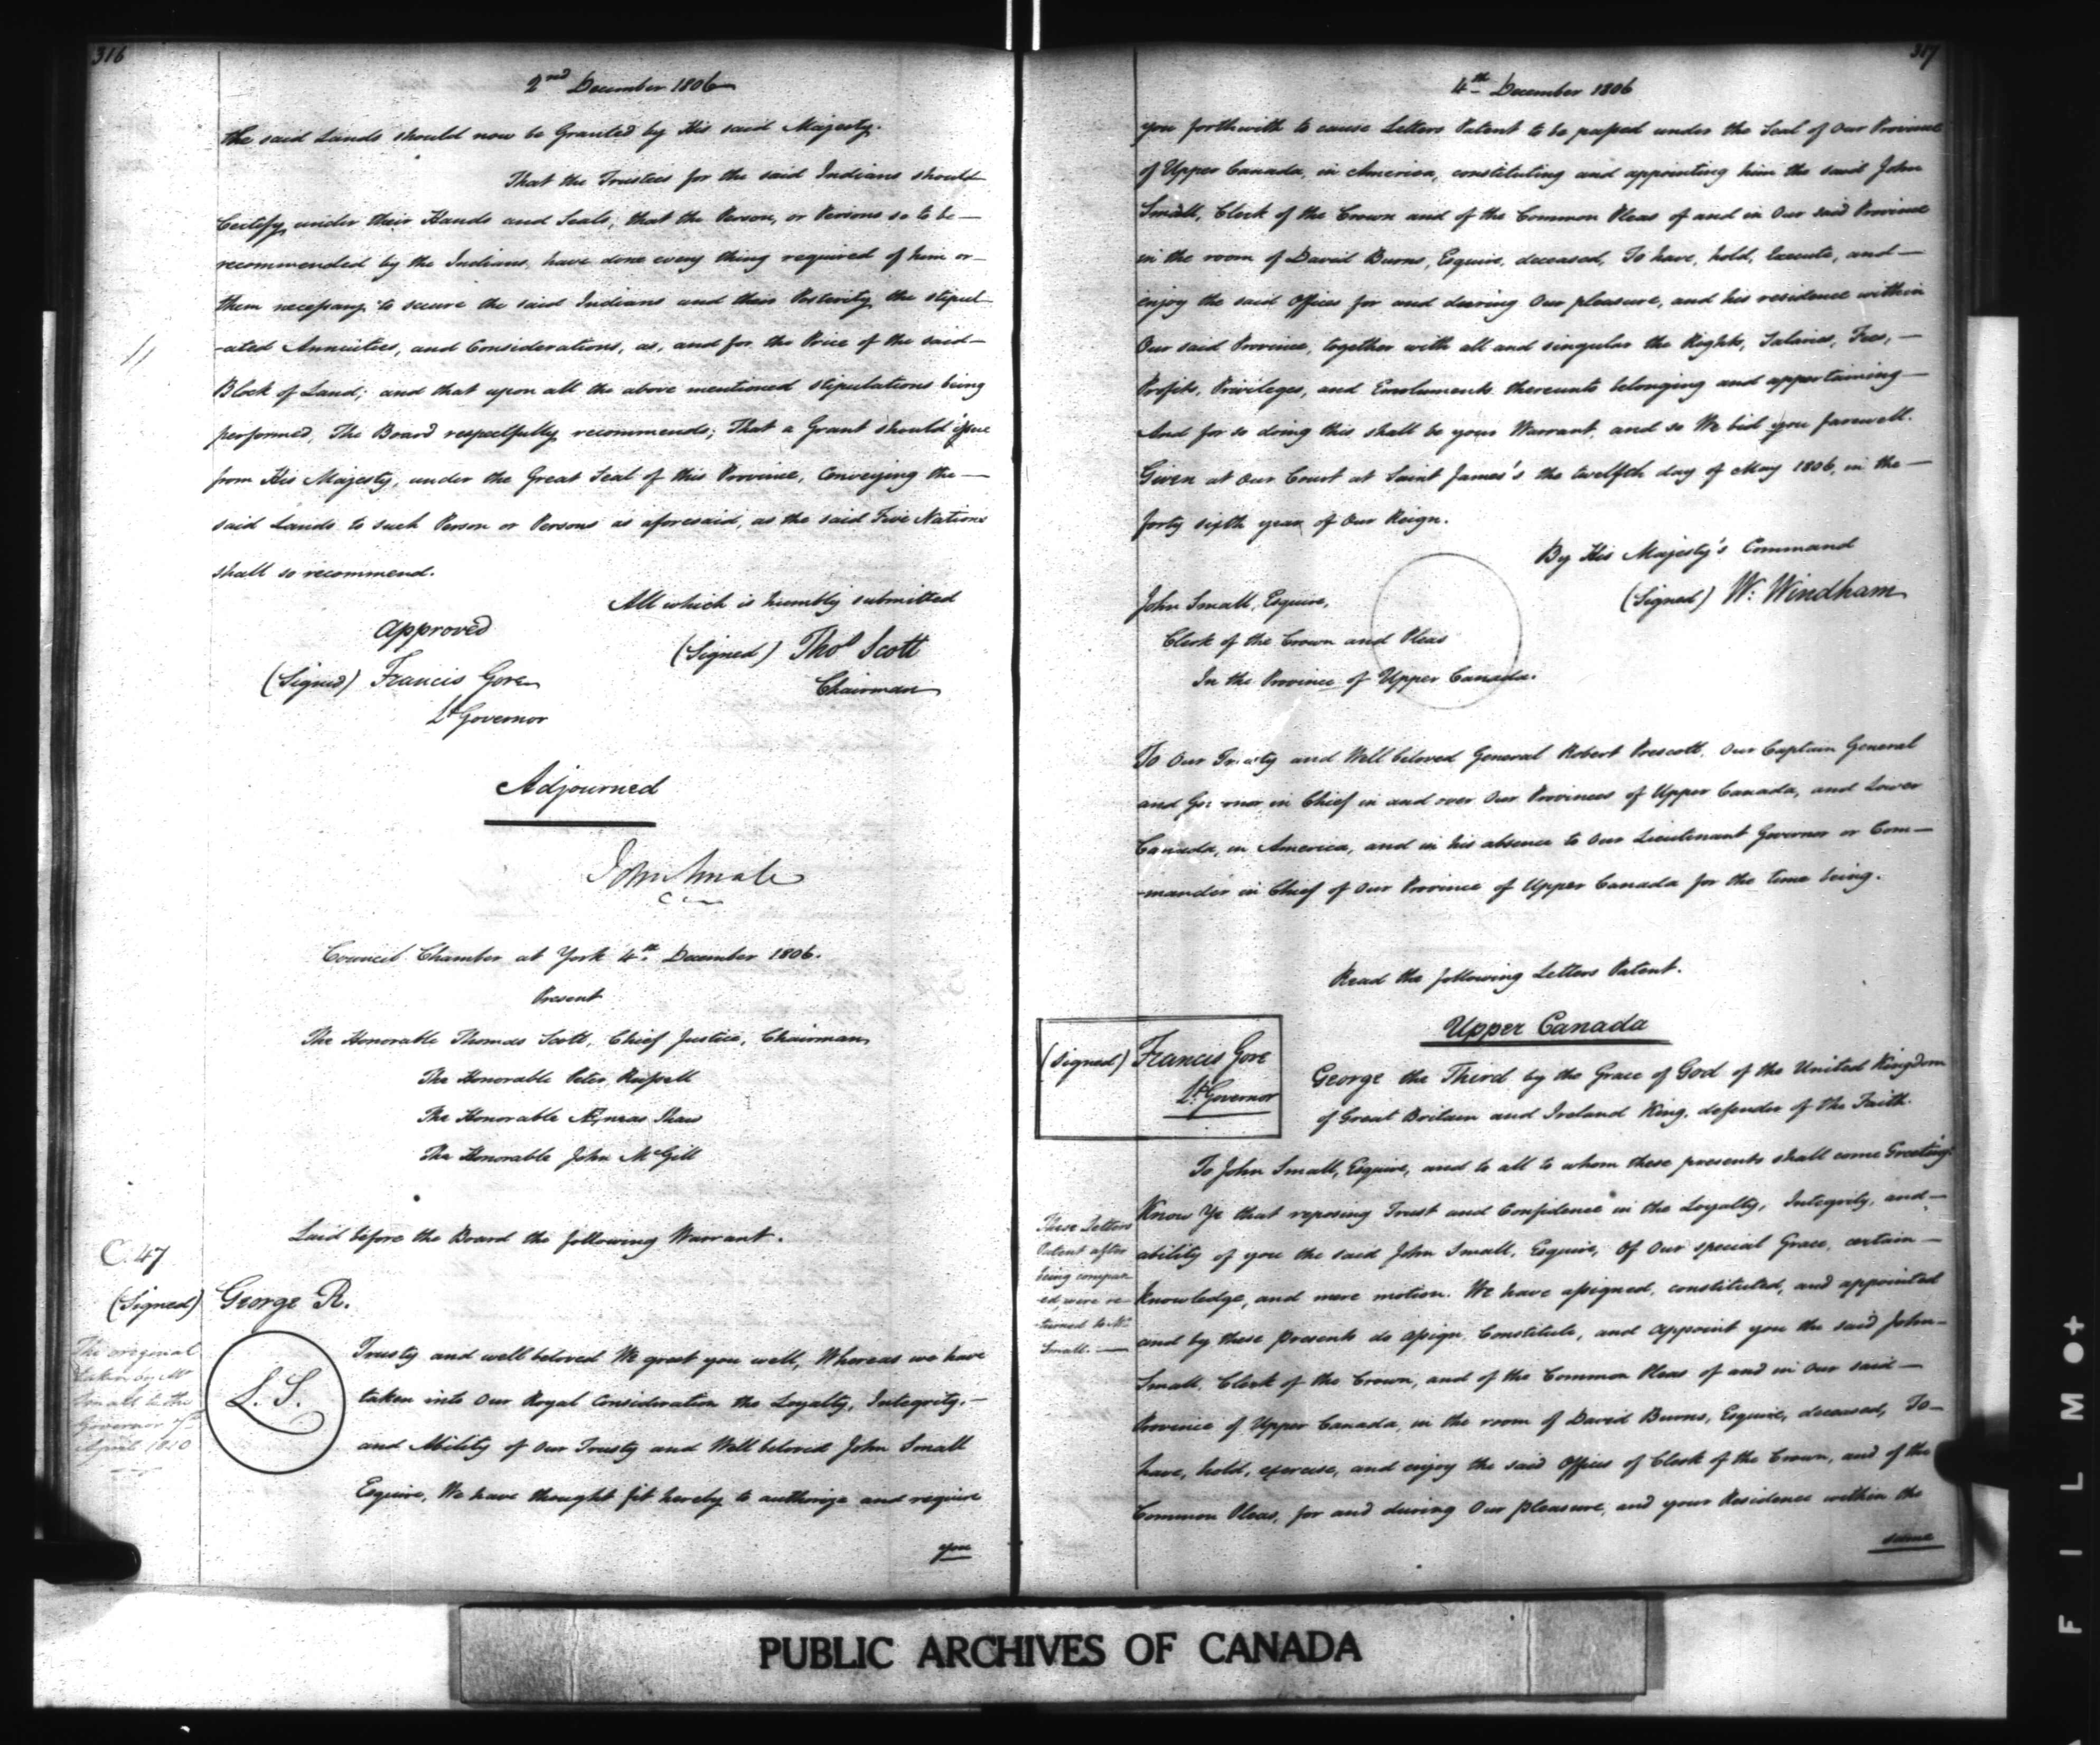 316
2nd December 1806
the said Lands should now be Granted by His said Majesty.
That the Trustees for the said Indians should
Certify under their Hands and Seals, that the Person, or Persons so to be —
recommended by the Indians, have done every thing required of him or —
them necessary to secure the said Indians and their Posterity the stipul-
-ated Annuities, and Considerations, as, and for the Price of the said —
Block of Land; and that upon all the above mentioned stipulations being
performed, The Board respectfully recommends; That a Grant should issue
from His Majesty, under the Great Seal of this Province, Conveying the —
said Lands to such Person or Persons as aforesaid, as the said Five Nations
shall so recommend.
All which is humbly submitted
Approved
(Signed) Thos Scott
(Signed) Francis Gore
Chairman
Lt Governor
Adjourned
John Small
Council Chamber at York 4th December 1806.
Present
The Honorable Thomas Scott, Chief Justice, Chairman
The Honorable Peter Russell
The Honorable Æneas Shaw
The Honorable John McGill
Laid before the Board the following Warrant.
C. 47
(Signed) George R.
The original
taken by Mr
Small to the
Governor 7th
April 1810
L. S.
Trusty and well beloved We greet you well, Whereas we have
taken into Our Royal Consideration the Loyalty, Integrity, —
and Ability of Our Trusty and Well beloved John Small
Esquire, We have thought fit hereby to authorize and require
you
317
4th December 1806
you forthwith to cause Letters Patent to be passed under the Seal of Our Province
of Upper Canada, in America, constituting and appointing him the said John
Small, Clerk of the Crown and of the Common Pleas of and in Our said Province
in the room of David Burns, Esquire, deceased, To have, hold, Execute, and —
enjoy the said Offices for and during Our pleasure, and his residence within
Our said Province, together with all and singular the Rights, Salaries, Fees, —
Profits, Privileges, and Emoluments thereunto belonging and appertaining —
And for so doing this shall be your Warrant, and so We bid you farewell.
Given at Our Court at Saint James's the twelfth day of May 1806, in the —
forty sixth year of Our Reign.
By His Majesty's Command
(Signed) W. Windham
John Small, Esquire,
Clerk of the Crown and Pleas
In the Province of Upper Canada.
To Our Trusty and Well beloved General Robert Prescott, Our Captain General
and Governor in Chief in and over Our Provinces of Upper Canada, and Lower
Canada, in America, and in his absence to Our Lieutenant Governor or Com—
-mander in Chief of Our Province of Upper Canada for the time being.
Read the following Letters Patent.
Upper Canada
(Signed) Francis Gore
Lt. Governor
George the Third by the Grace of God of the United Kingdom
of Great Britain and Ireland King, defender of the Faith.
To John Small, Esquire, and to all to whom these presents shall come Greeting.
Know Ye that reposing Trust and Confidence in the Loyalty, Integrity, and —
ability of you the said John Small, Esquire, Of Our special Grace, certain —
Knowledge, and mere motion. We have assigned, constituted, and appointed
and by these Presents do assign, Constitute, and Appoint you the said John —
Small, Clerk of the Crown, and of the Common Pleas of and in Our said —
Province of Upper Canada, in the room of David Burns, Esquire, deceased, To —
have, hold, exercise, and enjoy the said Offices of Clerk of the Crown, and of the
Common Pleas, for and during Our Pleasure, and your Residence within the
same
These Letters
Patent after
being compar-
ed, were re-
-turned to Mr
Small. —
PUBLIC ARCHIVES OF CANADA
FILM